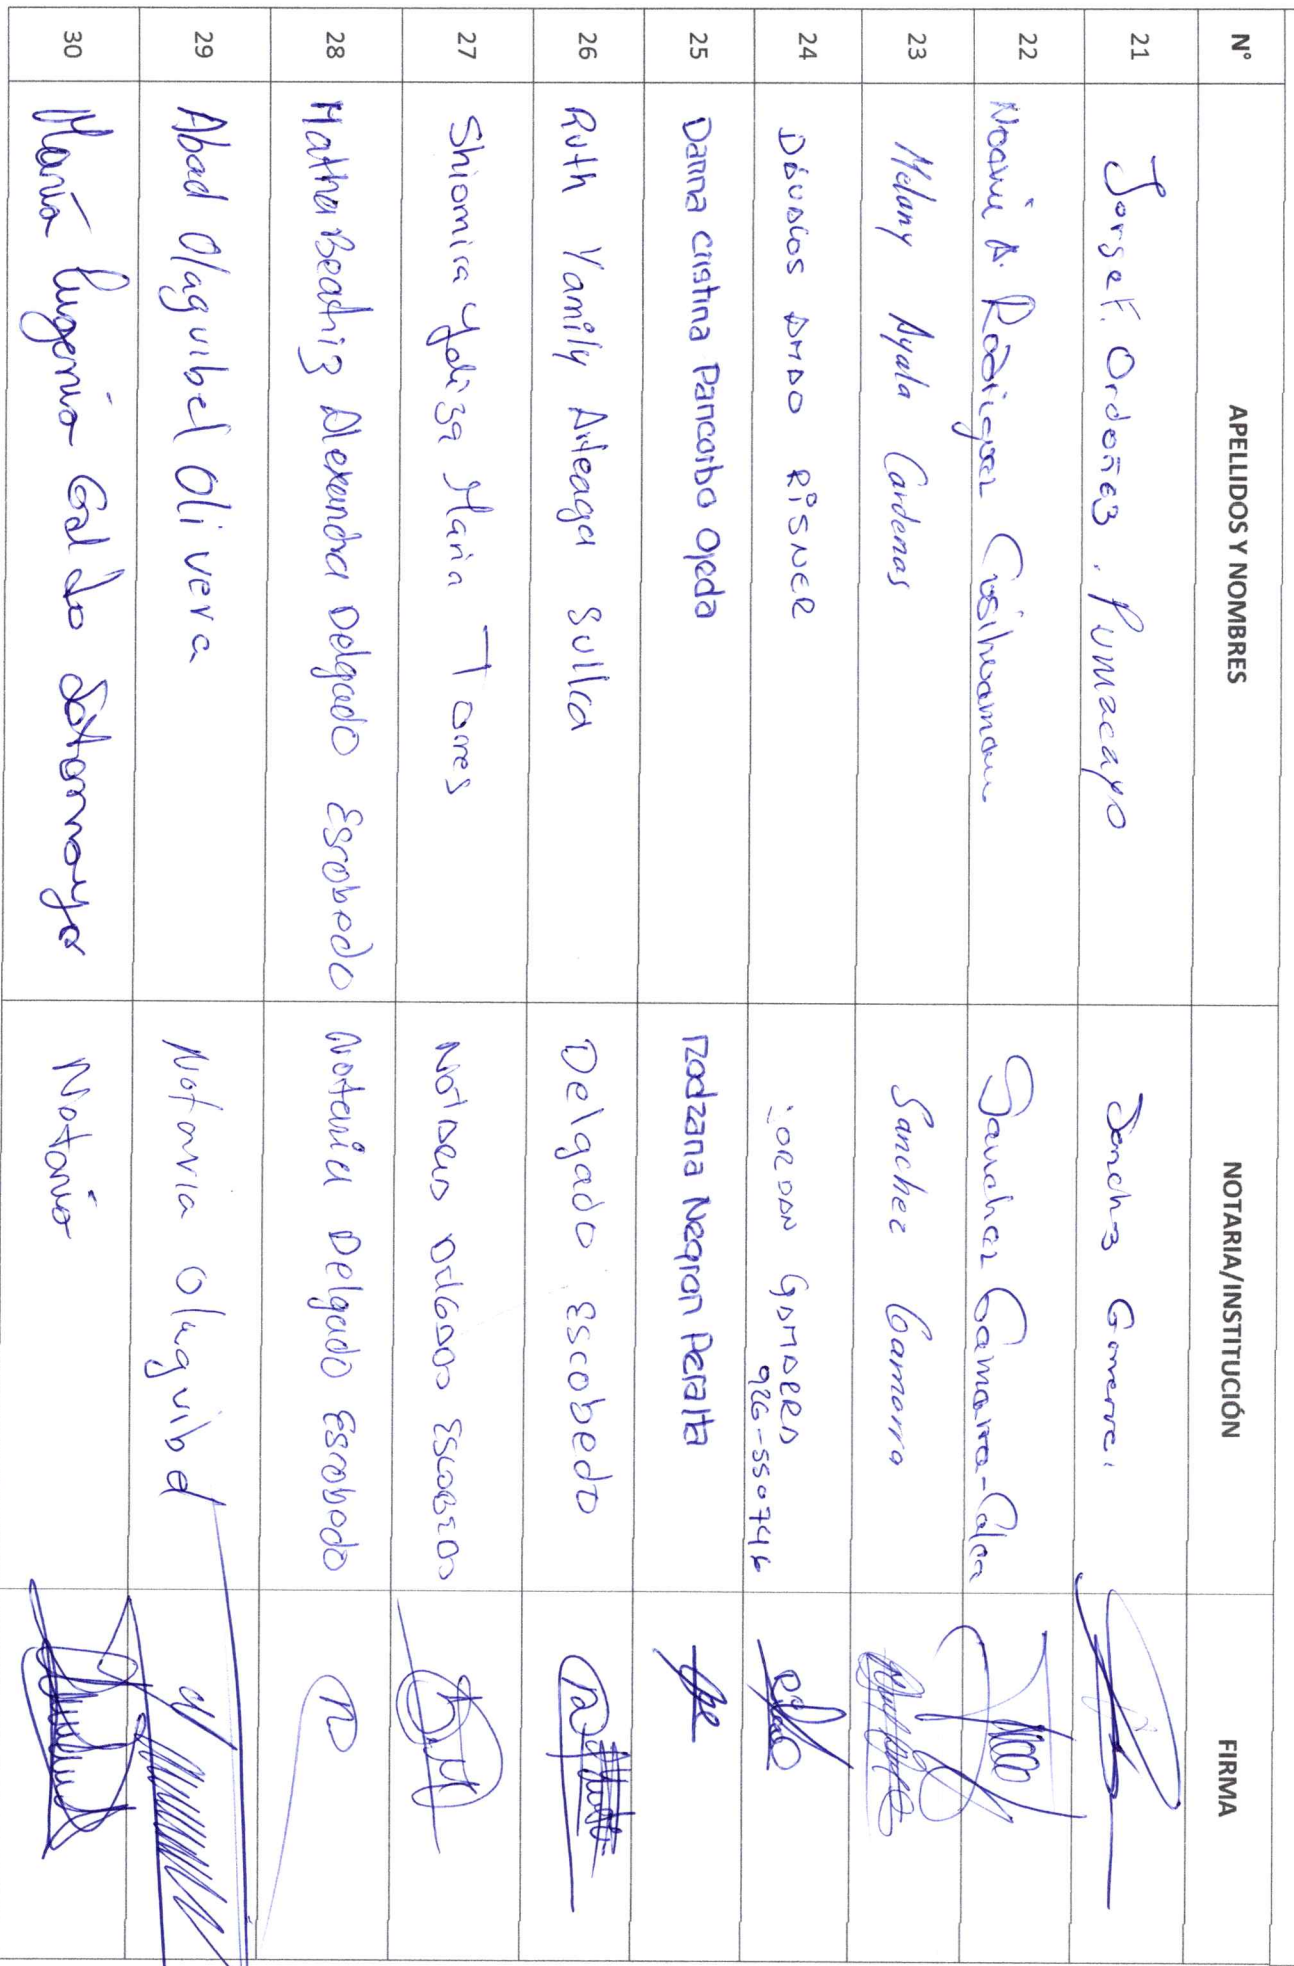 N° APELLIDOS Y NOMBRES NOTARIA/INSTITUCIÓN FIRMA
21 Jorge F. Ordoñez Pumacayo Sanchz
22 A. Rodriguez Cusihuaman Sanchez Gamarra-Calca
23 Melany Ayala Cardenas Sanchez Gamarra
24 RISNER GAMARRA
926-550746
25 Danna Cristina Pancorbo Ojeda Negron Peralta
26 Ruth Yamily Arteaga Sullca Delgado Escobedo
27 Shiomira Yaliza Maria Torres
28 Martha Beatriz Alexandra Delgado Escobedo Notaria Delgado Escobedo
29 Abad Olaguibel Olivera Notaria Olaguibel
30 María Eugenia Galdo Sotomayor Notario